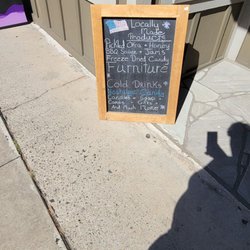 Locally
Made
Products
Pickled Okra + Honey
BBQ Sauce + Jams
Freeze Dried Candy
Furniture
Cold Drinks
Candles + Soaps
Cards + Gifts
And Much More!